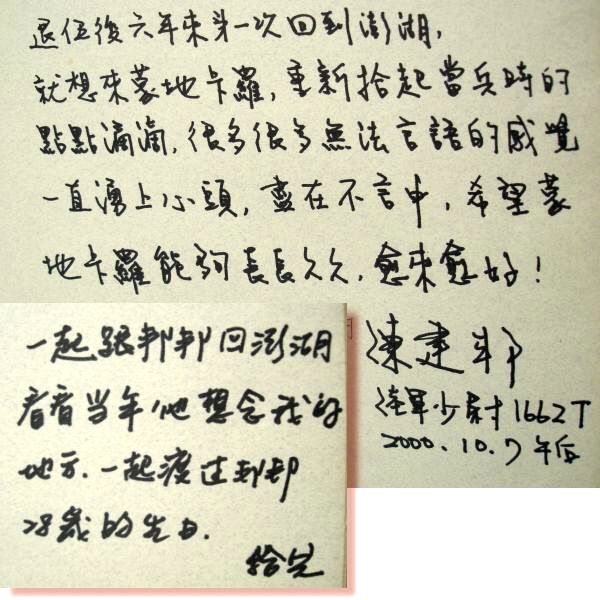 退伍後六年來第一次回到澎湖,
就想來蒙地卡羅,重新拾起當兵時的
點點滴滴,很多很多無法言語的感覺
一直湧上心頭,盡在不言中,希望蒙
地卡羅能夠長長久久,愈來愈好!
陳建邦
陸軍少尉1662T
2000.10.7 午后
一起跟邦邦回澎湖
看看當年他想念我的
地方.一起渡过邦邦
28歲的生日.